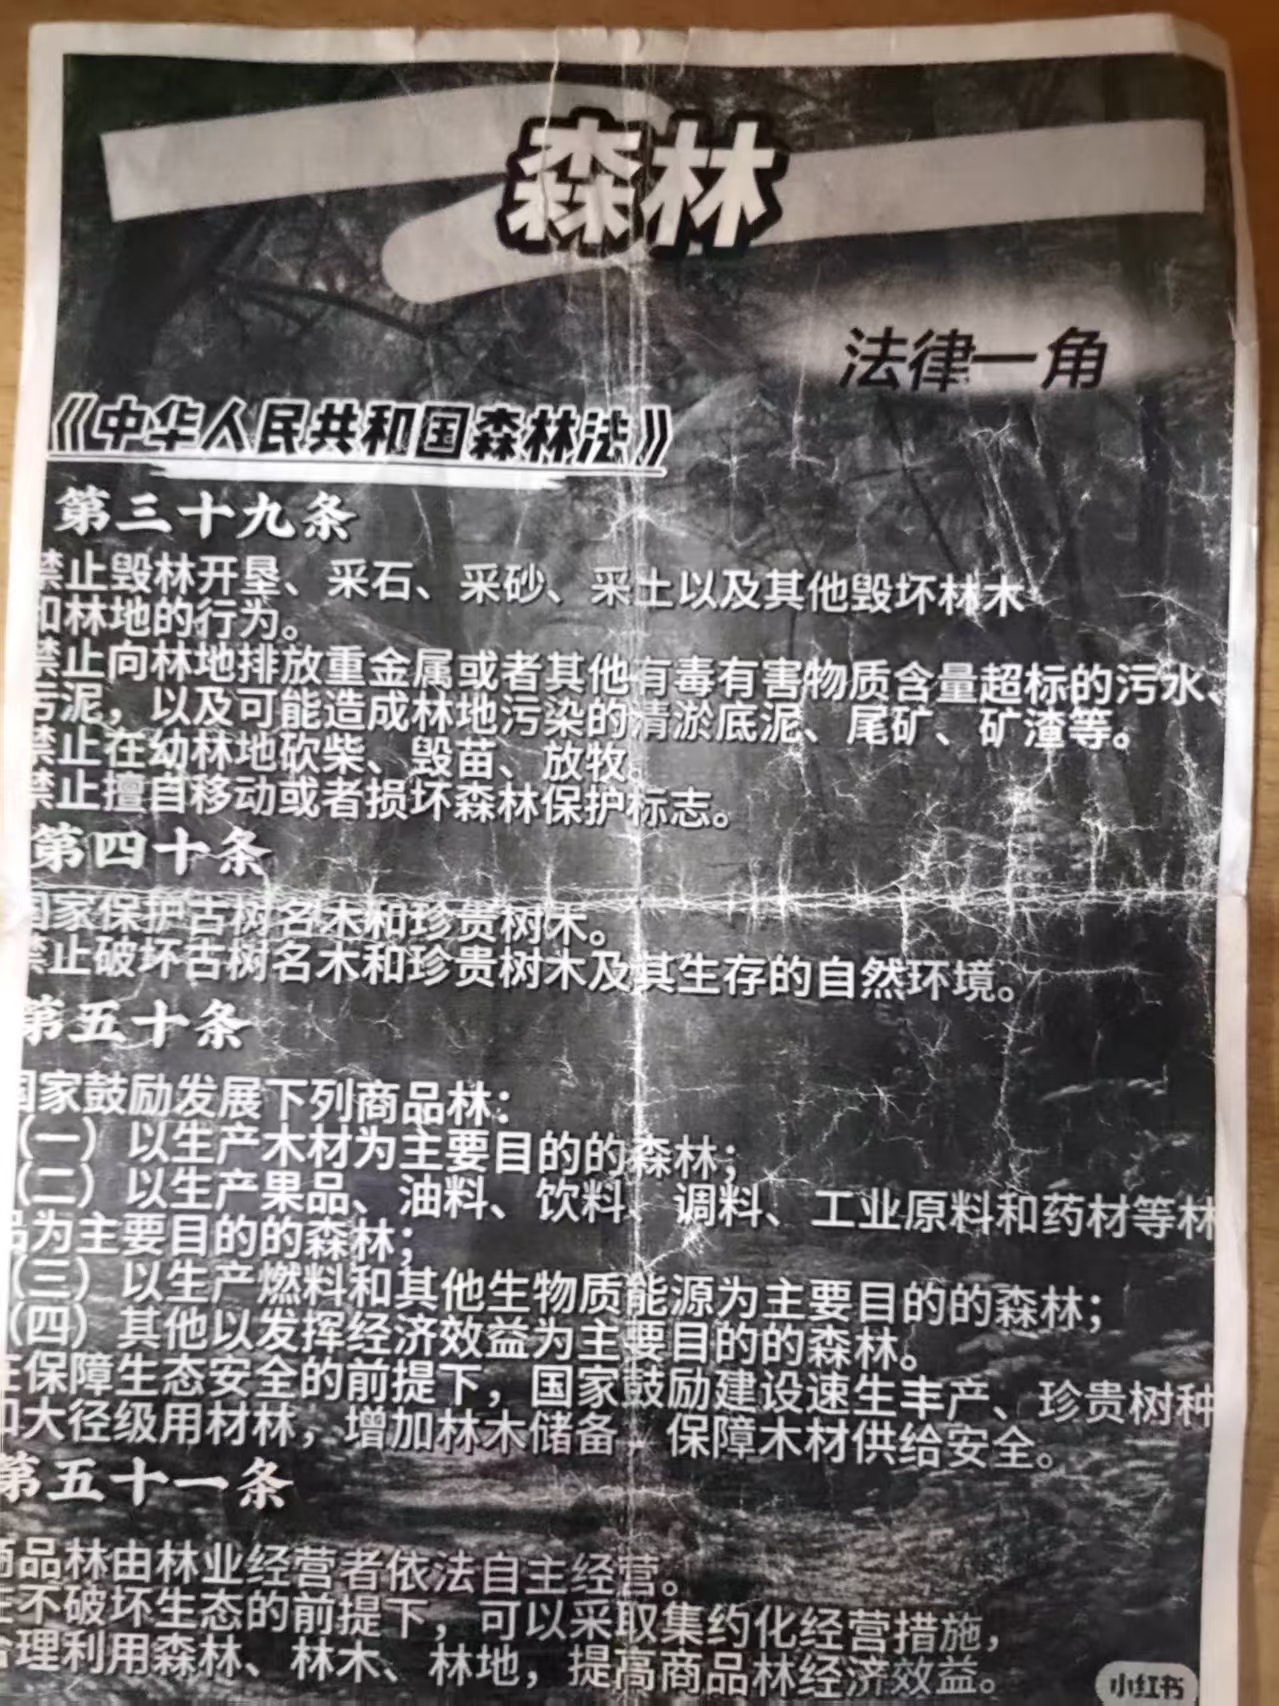 森林
法律一角
《中华人民共和国森林法》
第三十九条
禁止毁林开垦、采石、采砂、采土以及其他毁坏林木
和林地的行为。
禁止向林地排放重金属或者其他有毒有害物质含量超标的污水、
污泥，以及可能造成林地污染的清淤底泥、尾矿、矿渣等。
禁止在幼林地砍柴、毁苗、放牧。
禁止擅自移动或者损坏森林保护标志。
第四十条
国家保护古树名木和珍贵树木。
禁止破坏古树名木和珍贵树木及其生存的自然环境。
第五十条
国家鼓励发展下列商品林：
（一）以生产木材为主要目的的森林；
（二）以生产果品、油料、饮料、调料、工业原料和药材等林
品为主要目的的森林；
（三）以生产燃料和其他生物质能源为主要目的的森林；
（四）其他以发挥经济效益为主要目的的森林。
在保障生态安全的前提下，国家鼓励建设速生丰产、珍贵树种
和大径级用材林，增加林木储备，保障木材供给安全。
第五十一条
商品林由林业经营者依法自主经营。
在不破坏生态的前提下，可以采取集约化经营措施，
合理利用森林、林木、林地，提高商品林经济效益。
小红书